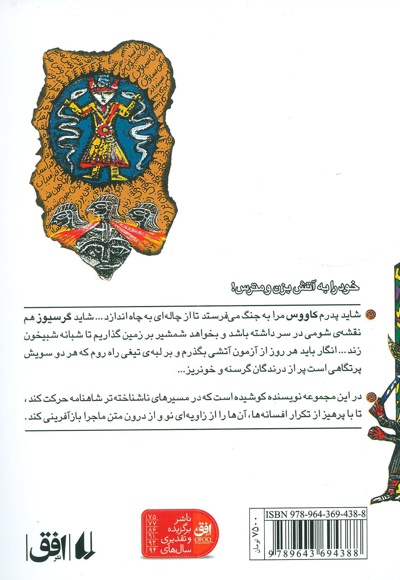 خود را به آتش بزن و مترس!
شاید پدرم کاووس مرا به جنگ می‌فرستد تا از چاله‌ای به چاه اندازد... شاید گرسیوز هم
نقشه‌ی شومی در سر داشته باشد و بخواهد شمشیر بر زمین گذاریم تا شبانه شبیخون
زند... انگار باید هر روز از آزمون آتشی بگذرم و بر لبه‌ی تیغی راه روم که هر دو سویش
پرتگاهی است پر از درندگان گرسنه و خونریز...
در این مجموعه نویسنده کوشیده است که در مسیرهای ناشناخته‌تر شاهنامه حرکت کند،
تا با پرهیز از تکرار افسانه‌ها، آن‌ها را از زاویه‌ای نو و از درون متن ماجرا بازآفرینی کند.
ISBN 978-964-369-438-8
9 789643 694388
۷۵۰۰ تومان
ناشر
برگزیده
و تقدیری
سال‌های
افق
OFOQ
نشر افق